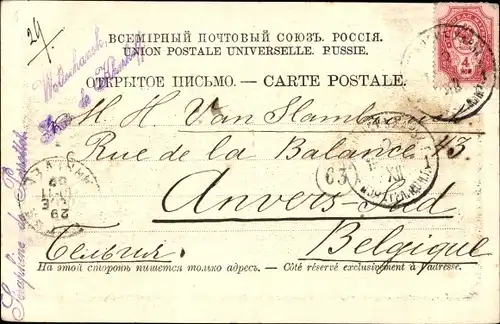 29
ВСЕМІРНЫЙ ПОЧТОВЫЙ СОЮЗЪ. РОССІЯ.
UNION POSTALE UNIVERSELLE. RUSSIE.
ОТКРЫТОЕ ПИСЬМО. — CARTE POSTALE.
Woltschansk,
de
4
M H Van
Rue de la Balance 43
(63)
Anvers-Sud
Бельгія
Belgique
На этой сторонѣ пишется только адресъ. — Côté réservé exclusivement à l'adresse.
Séraphine de